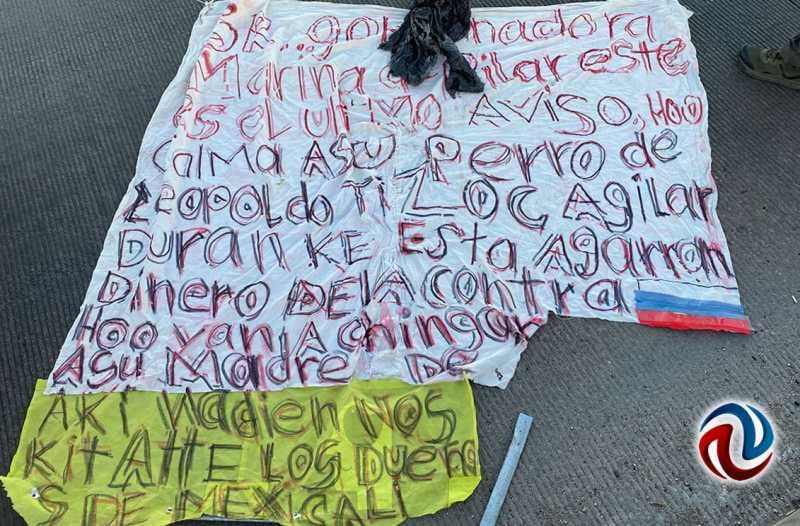 SR. gobernadora
Marina del Pilar este
es el ultimo AViSO, HOO
CalMA ASU Perro de
LEOPOLDO TiZLOC AgilAR
DURAN KE EStA Agarran
DinERO DE lA Contra
HOO VAN A chingAr
ASu MAdRE DE
AKi NAdien NOS
KitAttE LOS DUEñO
S DE MEXiCALi